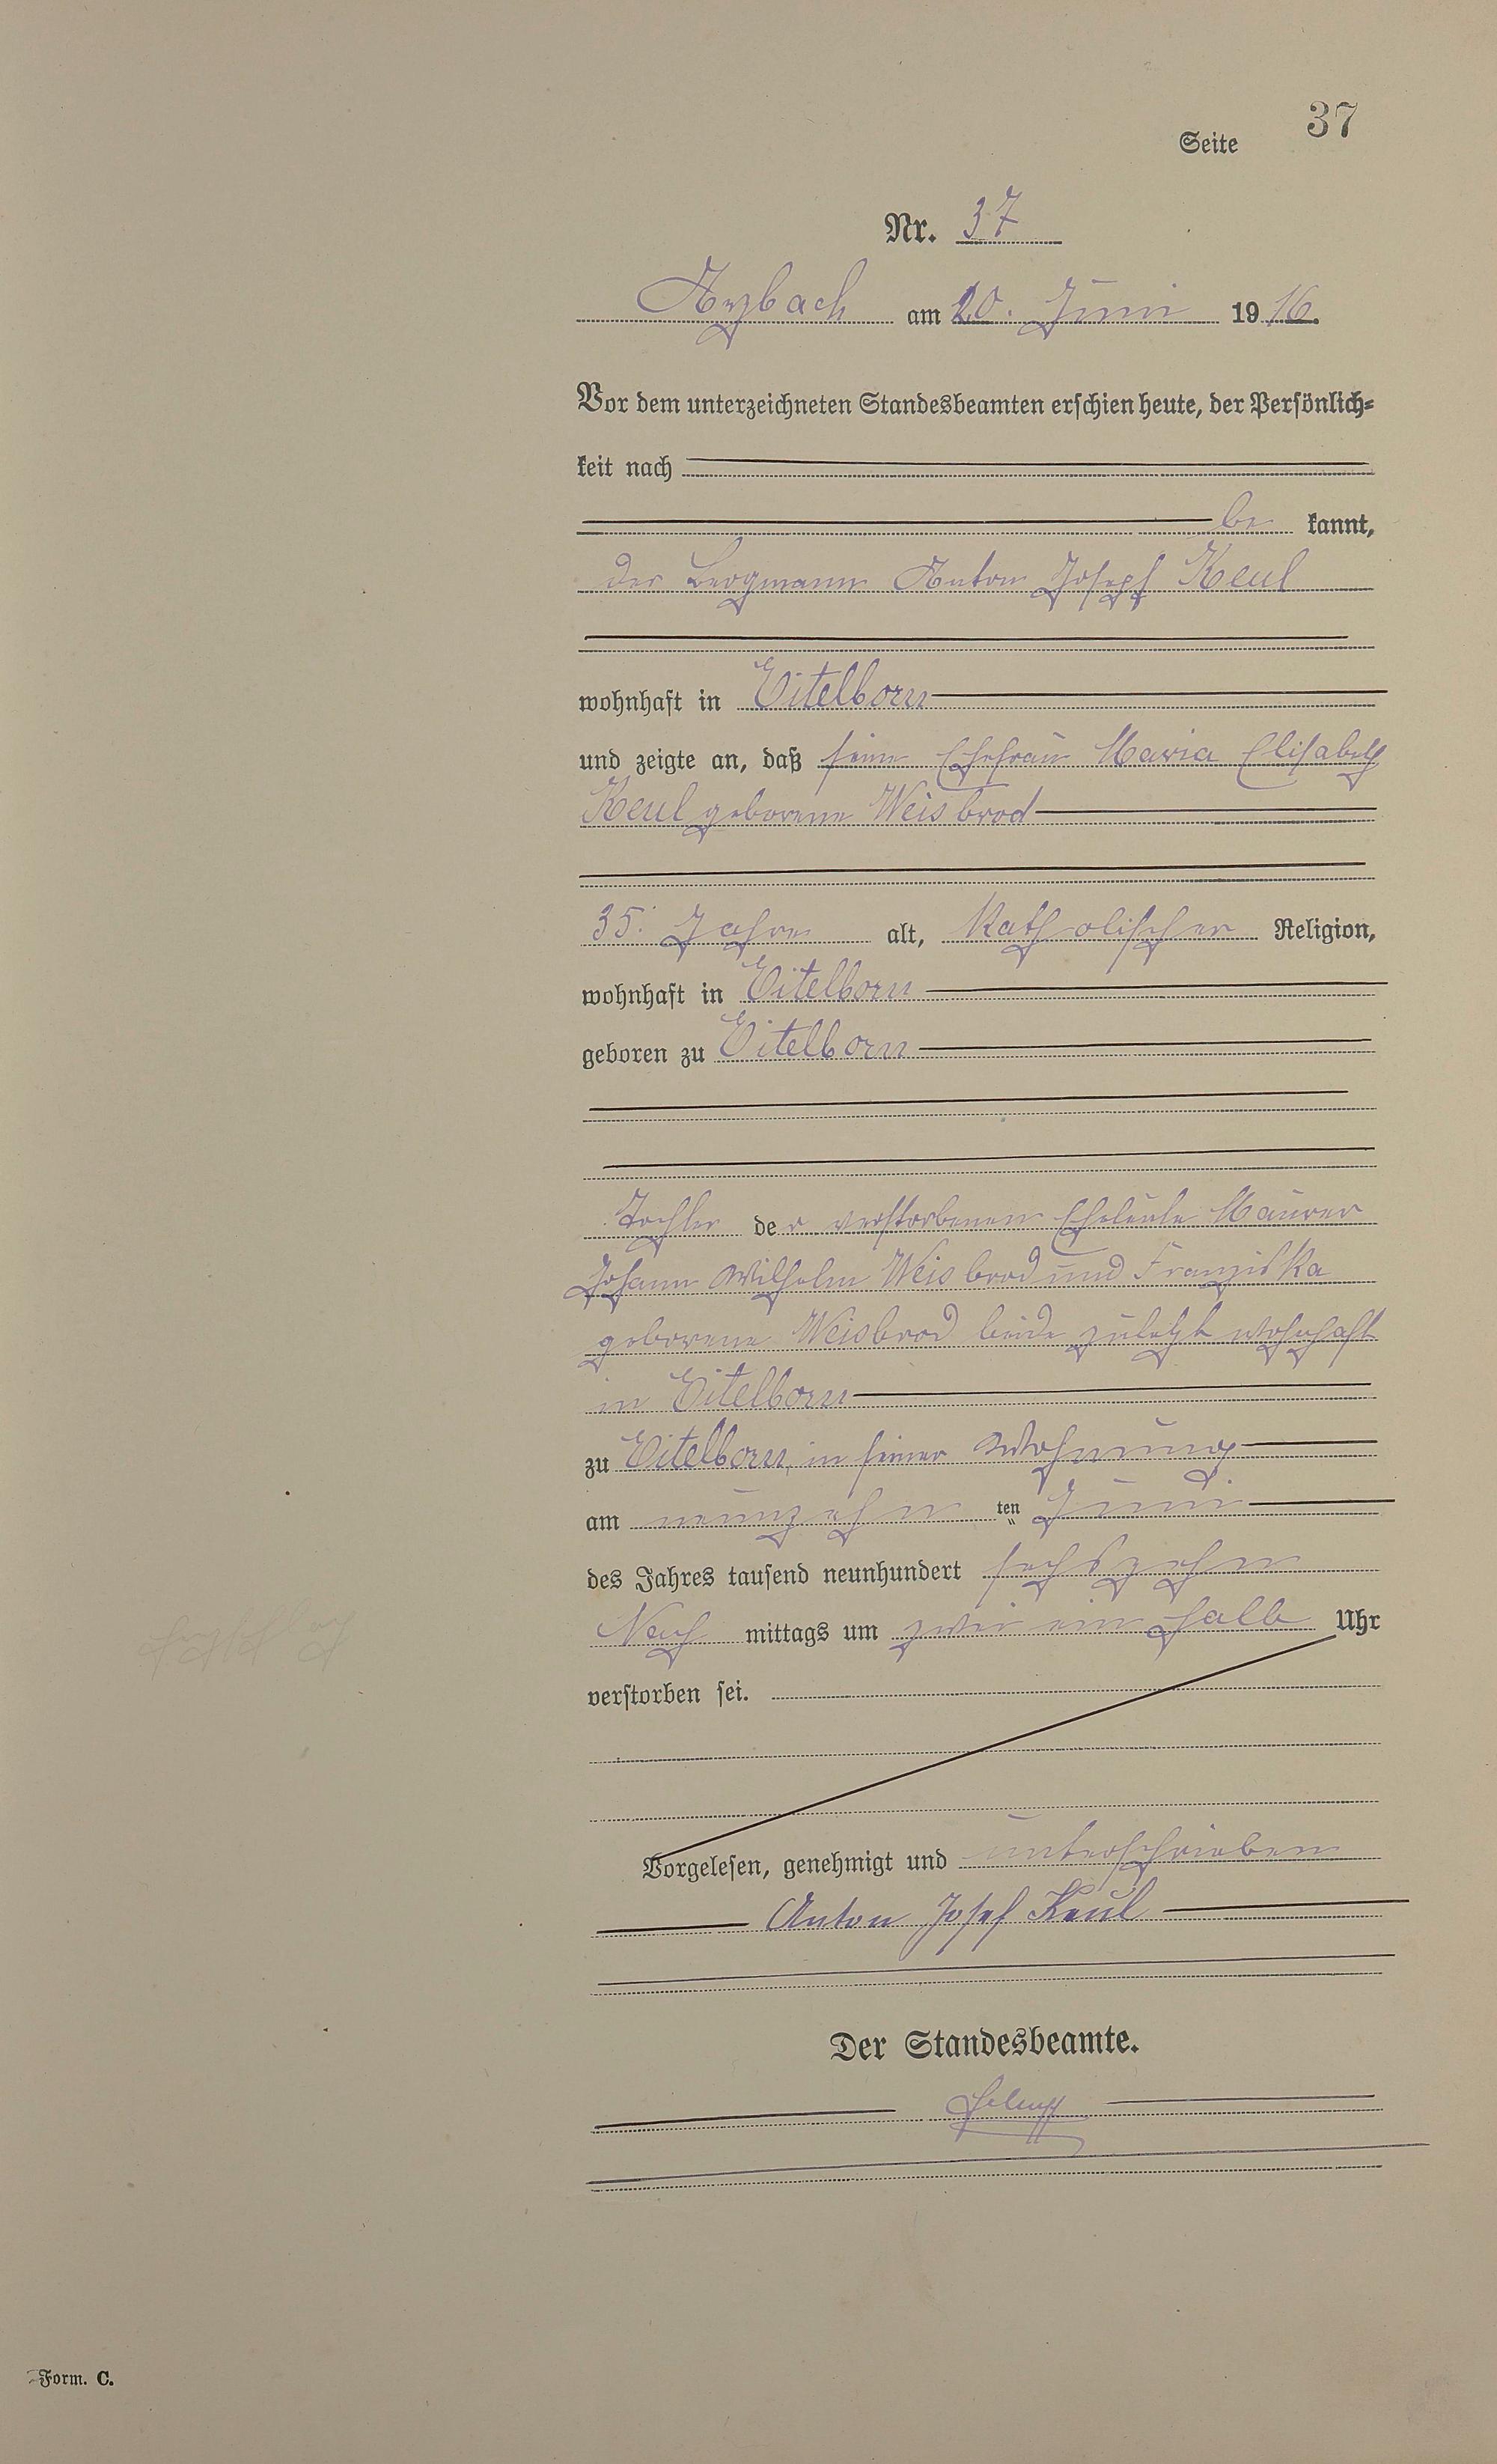 Seite 37
Nr. 37
Arzbach am 20. Juni 1916.
Vor dem unterzeichneten Standesbeamten erschien heute, der Persönlich-
keit nach
be kannt,
der Bergmann Anton Joseph Keul
wohnhaft in Eitelborn
und zeigte an, daß seine Ehefrau Maria Elisabeth
Keul geborene Weisbrod
35 Jahre alt, katholischer Religion,
wohnhaft in Eitelborn
geboren zu Eitelborn
Tochter der verstorbenen Eheleute Maurer
Johann Wilhelm Weisbrod und Franziska
geborene Weisbrod beide zuletzt wohnhaft
in Eitelborn
zu Eitelborn, in seiner Wohnung
am neunzehn ten Juni
des Jahres tausend neunhundert sechszehn
Nach mittags um zwei ein halb Uhr
verstorben sei.
Vorgelesen, genehmigt und unterschrieben
Anton Josef Keul
Der Standesbeamte.
Form. C.